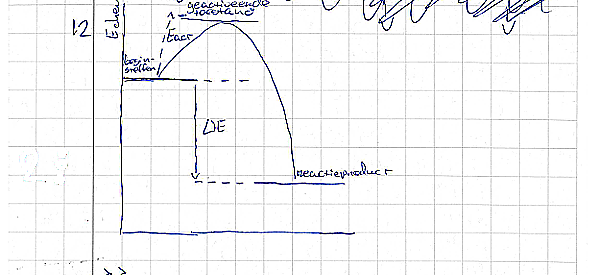 12
Echem
geactiveerde
toestand
Eact
begin-
stoffen
ΔE
reactieproduct